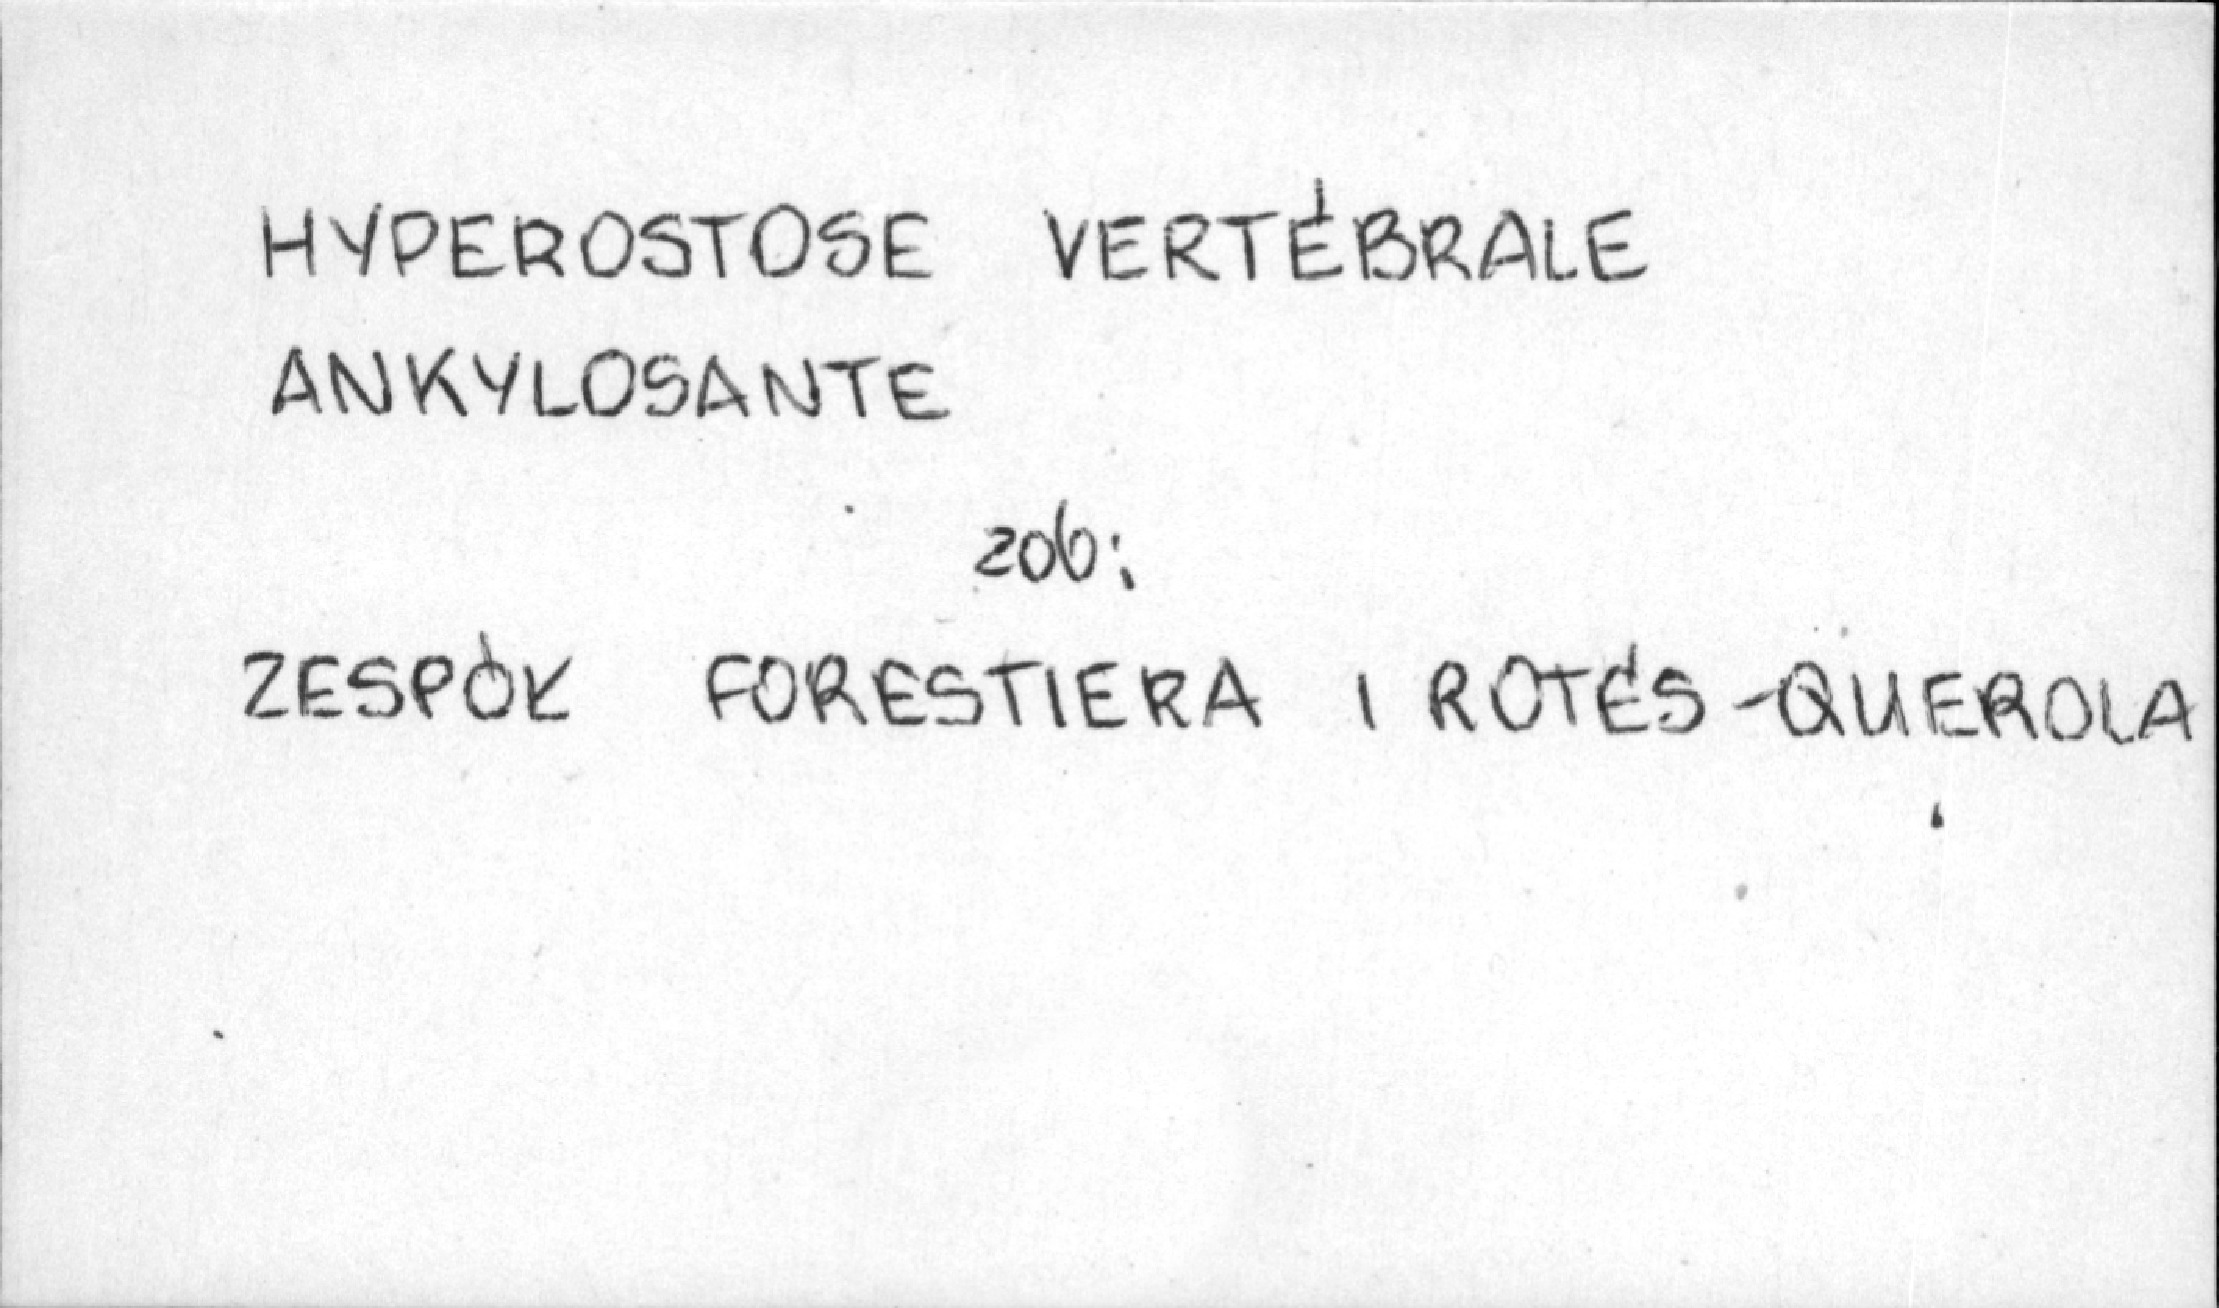 HYPEROSTOSE VERTÉBRALE
ANKYLOSANTE
zob:
ZESPÓŁ FORESTIERA I ROTÉS-QUEROLA